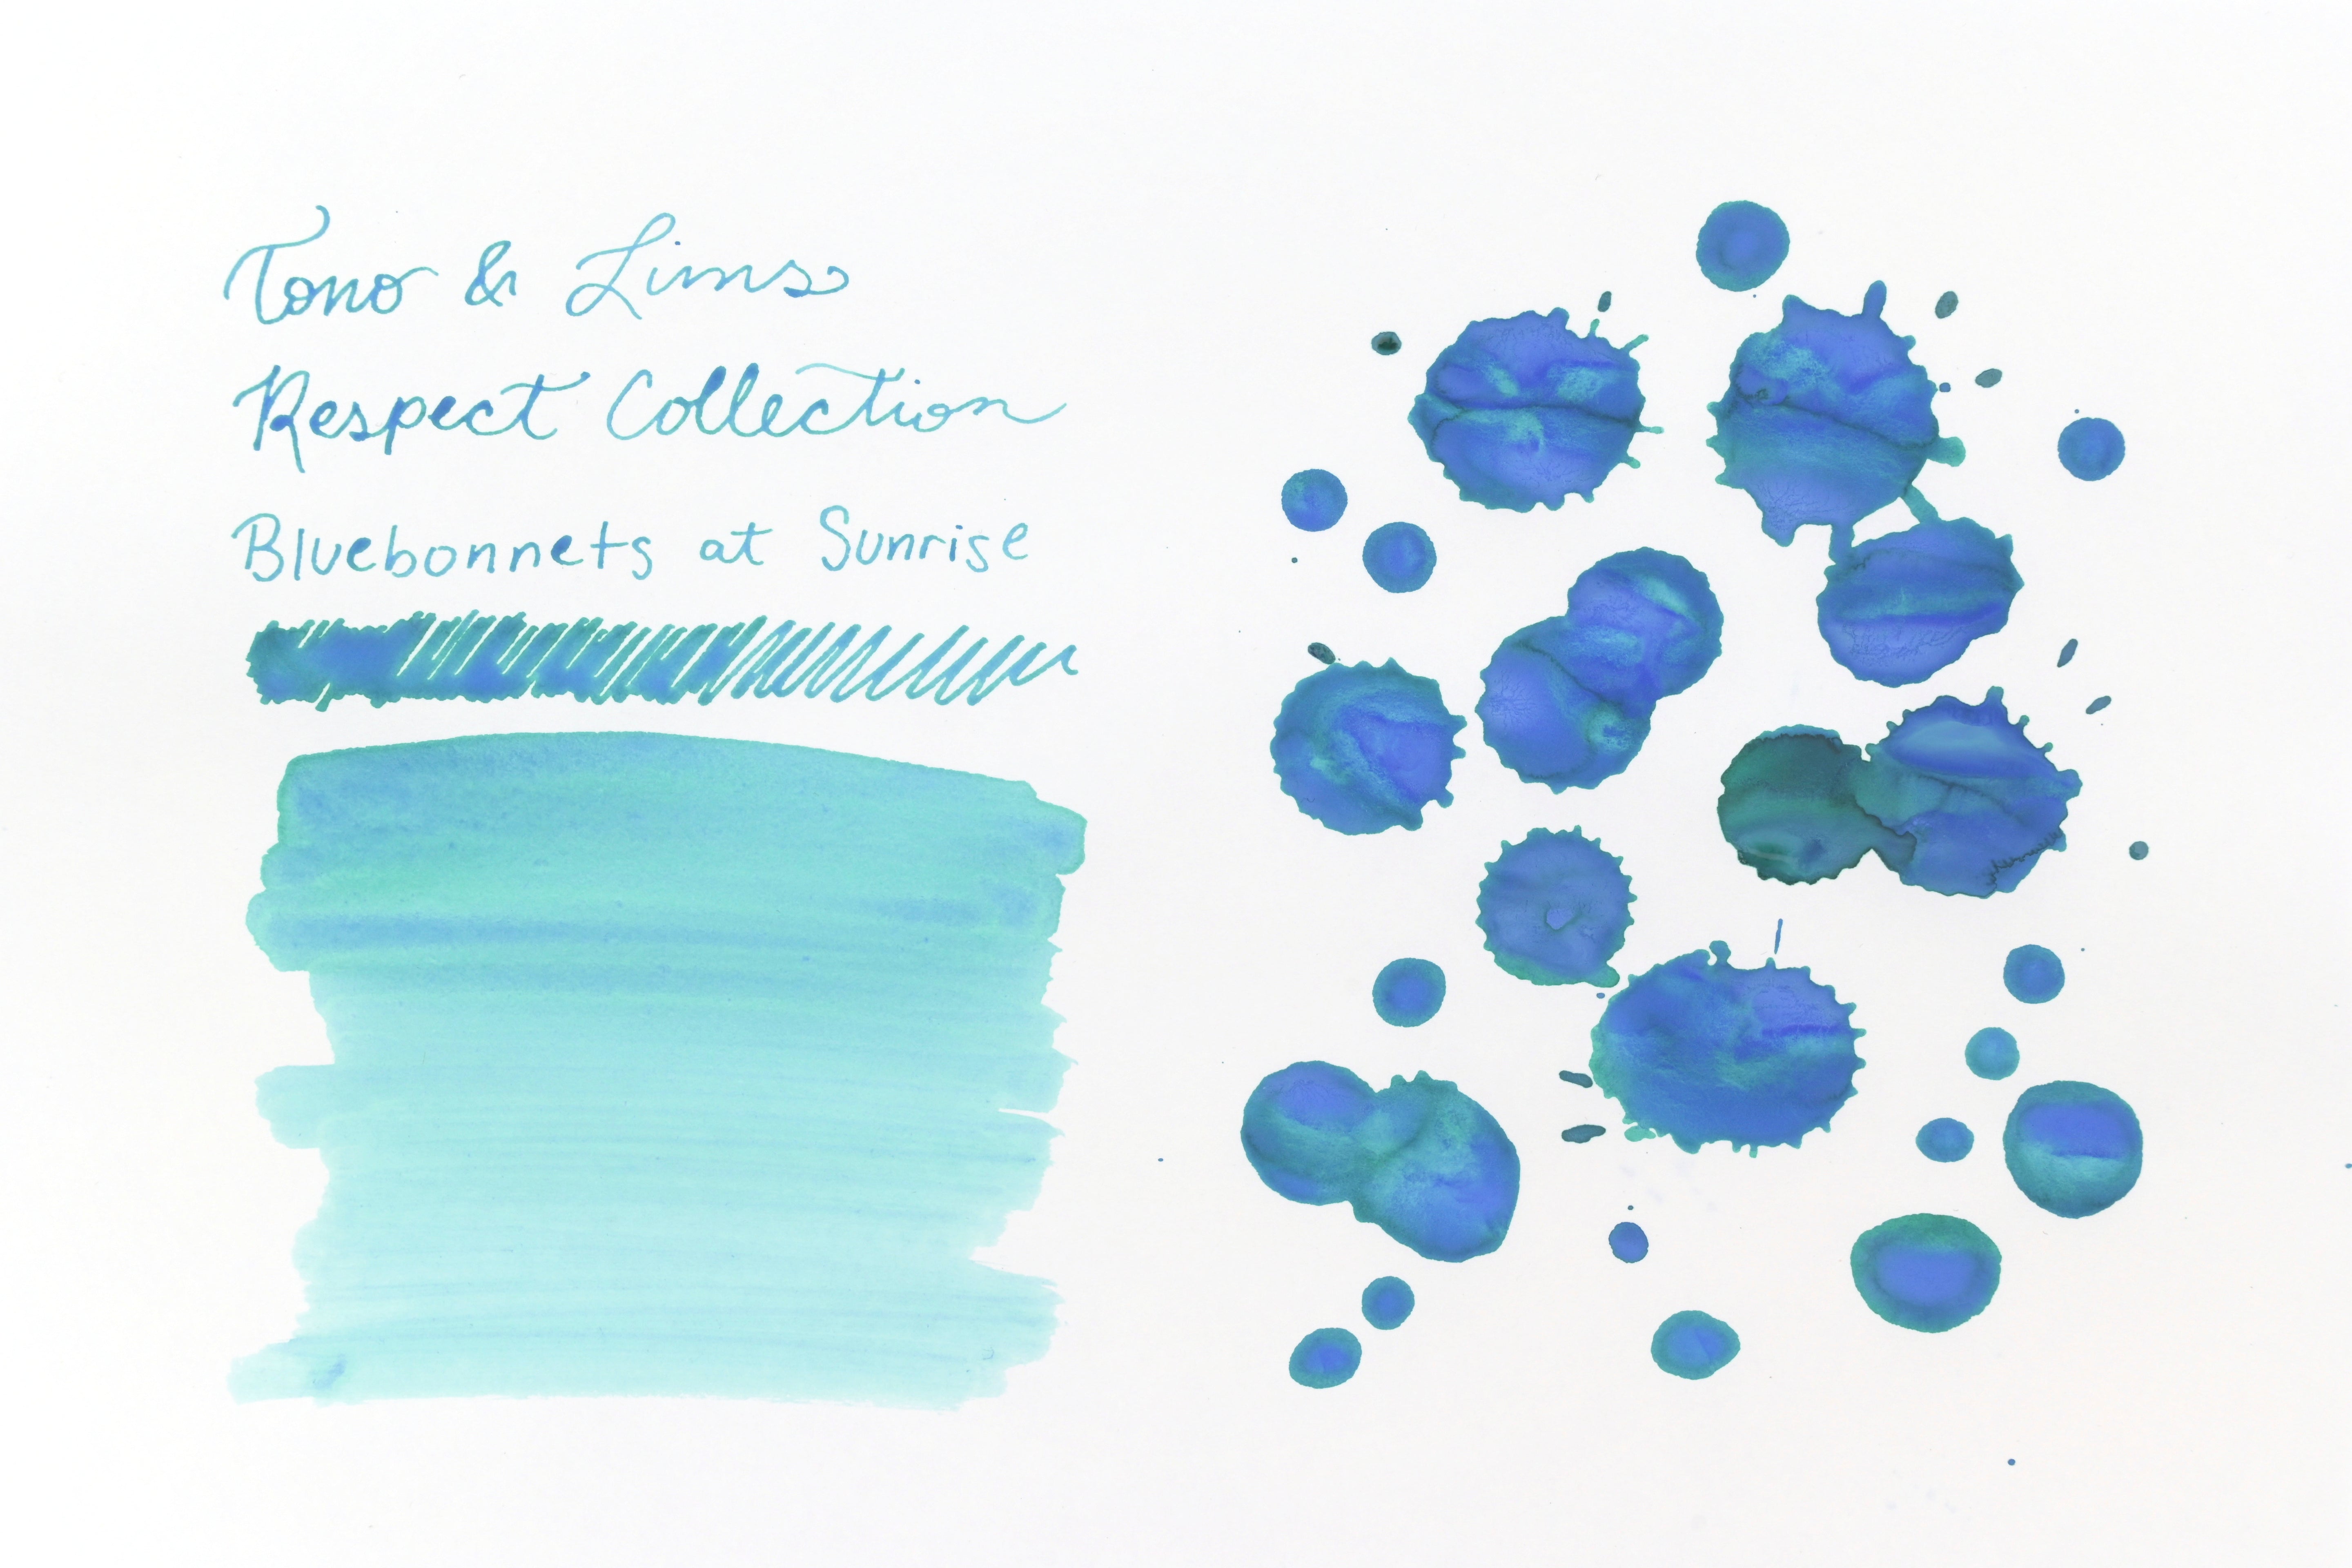 Tono & Lims
Respect Collection
Bluebonnets at Sunrise